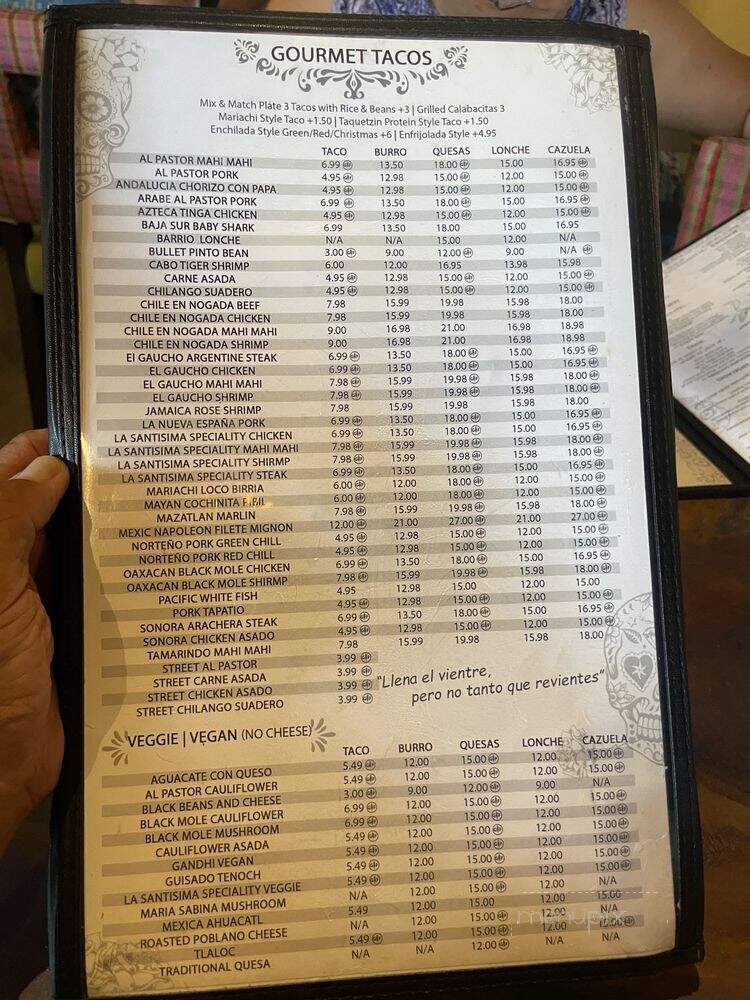 GOURMET TACOS
Mix & Match Plate 3 Tacos with Rice & Beans +3 | Grilled Calabacitas 3
Mariachi Style Taco +1.50 | Taquetzin Protein Style Taco +1.50
Enchilada Style Green/Red/Christmas +6 | Enfrijolada Style +4.95
TACO BURRO QUESAS LONCHE CAZUELA
AL PASTOR MAHI MAHI 6.99 13.50 18.00 15.00 16.95
AL PASTOR PORK 4.95 12.98 15.00 12.00 15.00
ANDALUCIA CHORIZO CON PAPA 4.95 12.98 15.00 12.00 15.00
ARABE AL PASTOR PORK 6.99 13.50 18.00 15.00 16.95
AZTECA TINGA CHICKEN 4.95 12.98 15.00 12.00 15.00
BAJA SUR BABY SHARK 6.99 13.50 18.00 15.00 16.95
BARRIO LONCHE N/A N/A 15.00 12.00 N/A
BULLET PINTO BEAN 3.00 9.00 12.00 9.00 N/A
CABO TIGER SHRIMP 6.00 12.00 16.95 13.98 15.98
CARNE ASADA 4.95 12.98 15.00 12.00 15.00
CHILANGO SUADERO 4.95 12.98 15.00 12.00 15.00
CHILE EN NOGADA BEEF 7.98 15.99 19.98 15.98 18.00
CHILE EN NOGADA CHICKEN 7.98 15.99 19.98 15.98 18.00
CHILE EN NOGADA MAHI MAHI 9.00 16.98 21.00 16.98 18.98
CHILE EN NOGADA SHRIMP 9.00 16.98 21.00 16.98 18.98
El GAUCHO ARGENTINE STEAK 6.99 13.50 18.00 15.00 16.95
EL GAUCHO CHICKEN 6.99 13.50 18.00 15.00 16.95
EL GAUCHO MAHI MAHI 7.98 15.99 19.98 15.98 18.00
EL GAUCHO SHRIMP 7.98 15.99 19.98 15.98 18.00
JAMAICA ROSE SHRIMP 7.98 15.99 19.98 15.98 18.00
LA NUEVA ESPAÑA PORK 6.99 13.50 18.00 15.00 16.95
LA SANTISIMA SPECIALITY CHICKEN 6.99 13.50 18.00 15.00 16.95
LA SANTISIMA SPECIALITY MAHI MAHI 7.98 15.99 19.98 15.98 18.00
LA SANTISIMA SPECIALITY SHIRMP 7.98 15.99 19.98 15.98 18.00
LA SANTISIMA SPECIALITY STEAK 6.99 13.50 18.00 15.00 16.95
MARIACHI LOCO BIRRIA 6.00 12.00 18.00 12.00 15.00
MAYAN COCHINITA PIBIL 6.00 12.00 18.00 12.00 15.00
MAZATLAN MARLIN 7.98 15.99 19.98 15.98 18.00
MEXIC NAPOLEON FILETE MIGNON 12.00 21.00 27.00 21.00 27.00
NORTEÑO PORK GREEN CHILL 4.95 12.98 15.00 12.00 15.00
NORTEÑO PORK RED CHILL 4.95 12.98 15.00 12.00 15.00
OAXACAN BLACK MOLE CHICKEN 6.99 13.50 18.00 15.00 16.95
OAXACAN BLACK MOLE SHIRMP 7.98 15.99 19.98 15.98 18.00
PACIFIC WHITE FISH 4.95 12.98 15.00 12.00 15.00
PORK TAPATIO 4.95 12.98 15.00 12.00 15.00
SONORA ARACHERA STEAK 6.99 13.50 18.00 15.00 16.95
SONORA CHICKEN ASADO 4.95 12.98 15.00 12.00 15.00
TAMARINDO MAHI MAHI 7.98 15.99 19.98 15.98 18.00
STREET AL PASTOR 3.99
STREET CARNE ASADA 3.99
STREET CHICKEN ASADO 3.99
STREET CHILANGO SUADERO 3.99
"Llena el vientre,
pero no tanto que revientes"
VEGGIE | VEGAN (NO CHEESE)
TACO BURRO QUESAS LONCHE CAZUELA
AGUACATE CON QUESO 5.49 12.00 15.00 12.00 15.00
AL PASTOR CAULIFLOWER 5.49 12.00 15.00 12.00 15.00
BLACK BEANS AND CHEESE 3.00 9.00 12.00 9.00 N/A
BLACK MOLE CAULIFLOWER 6.99 12.00 15.00 12.00 15.00
BLACK MOLE MUSHROOM 6.99 12.00 15.00 12.00 15.00
CAULIFLOWER ASADA 5.49 12.00 15.00 12.00 15.00
GANDHI VEGAN 5.49 12.00 15.00 12.00 15.00
GUISADO TENOCH 5.49 12.00 15.00 12.00 15.00
LA SANTISIMA SPECIALITY VEGGIE 5.49 12.00 15.00 12.00 15.00
MARIA SABINA MUSHROOM N/A 12.00 15.00 12.00 N/A
MEXICA AHUACATL 5.49 12.00 15.00 12.00 15.00
ROASTED POBLANO CHEESE N/A 12.00 15.00 12.00 N/A
TLALOC 5.49 12.00 15.00 12.00 15.00
TRADITIONAL QUESA N/A N/A 12.00 N/A N/A